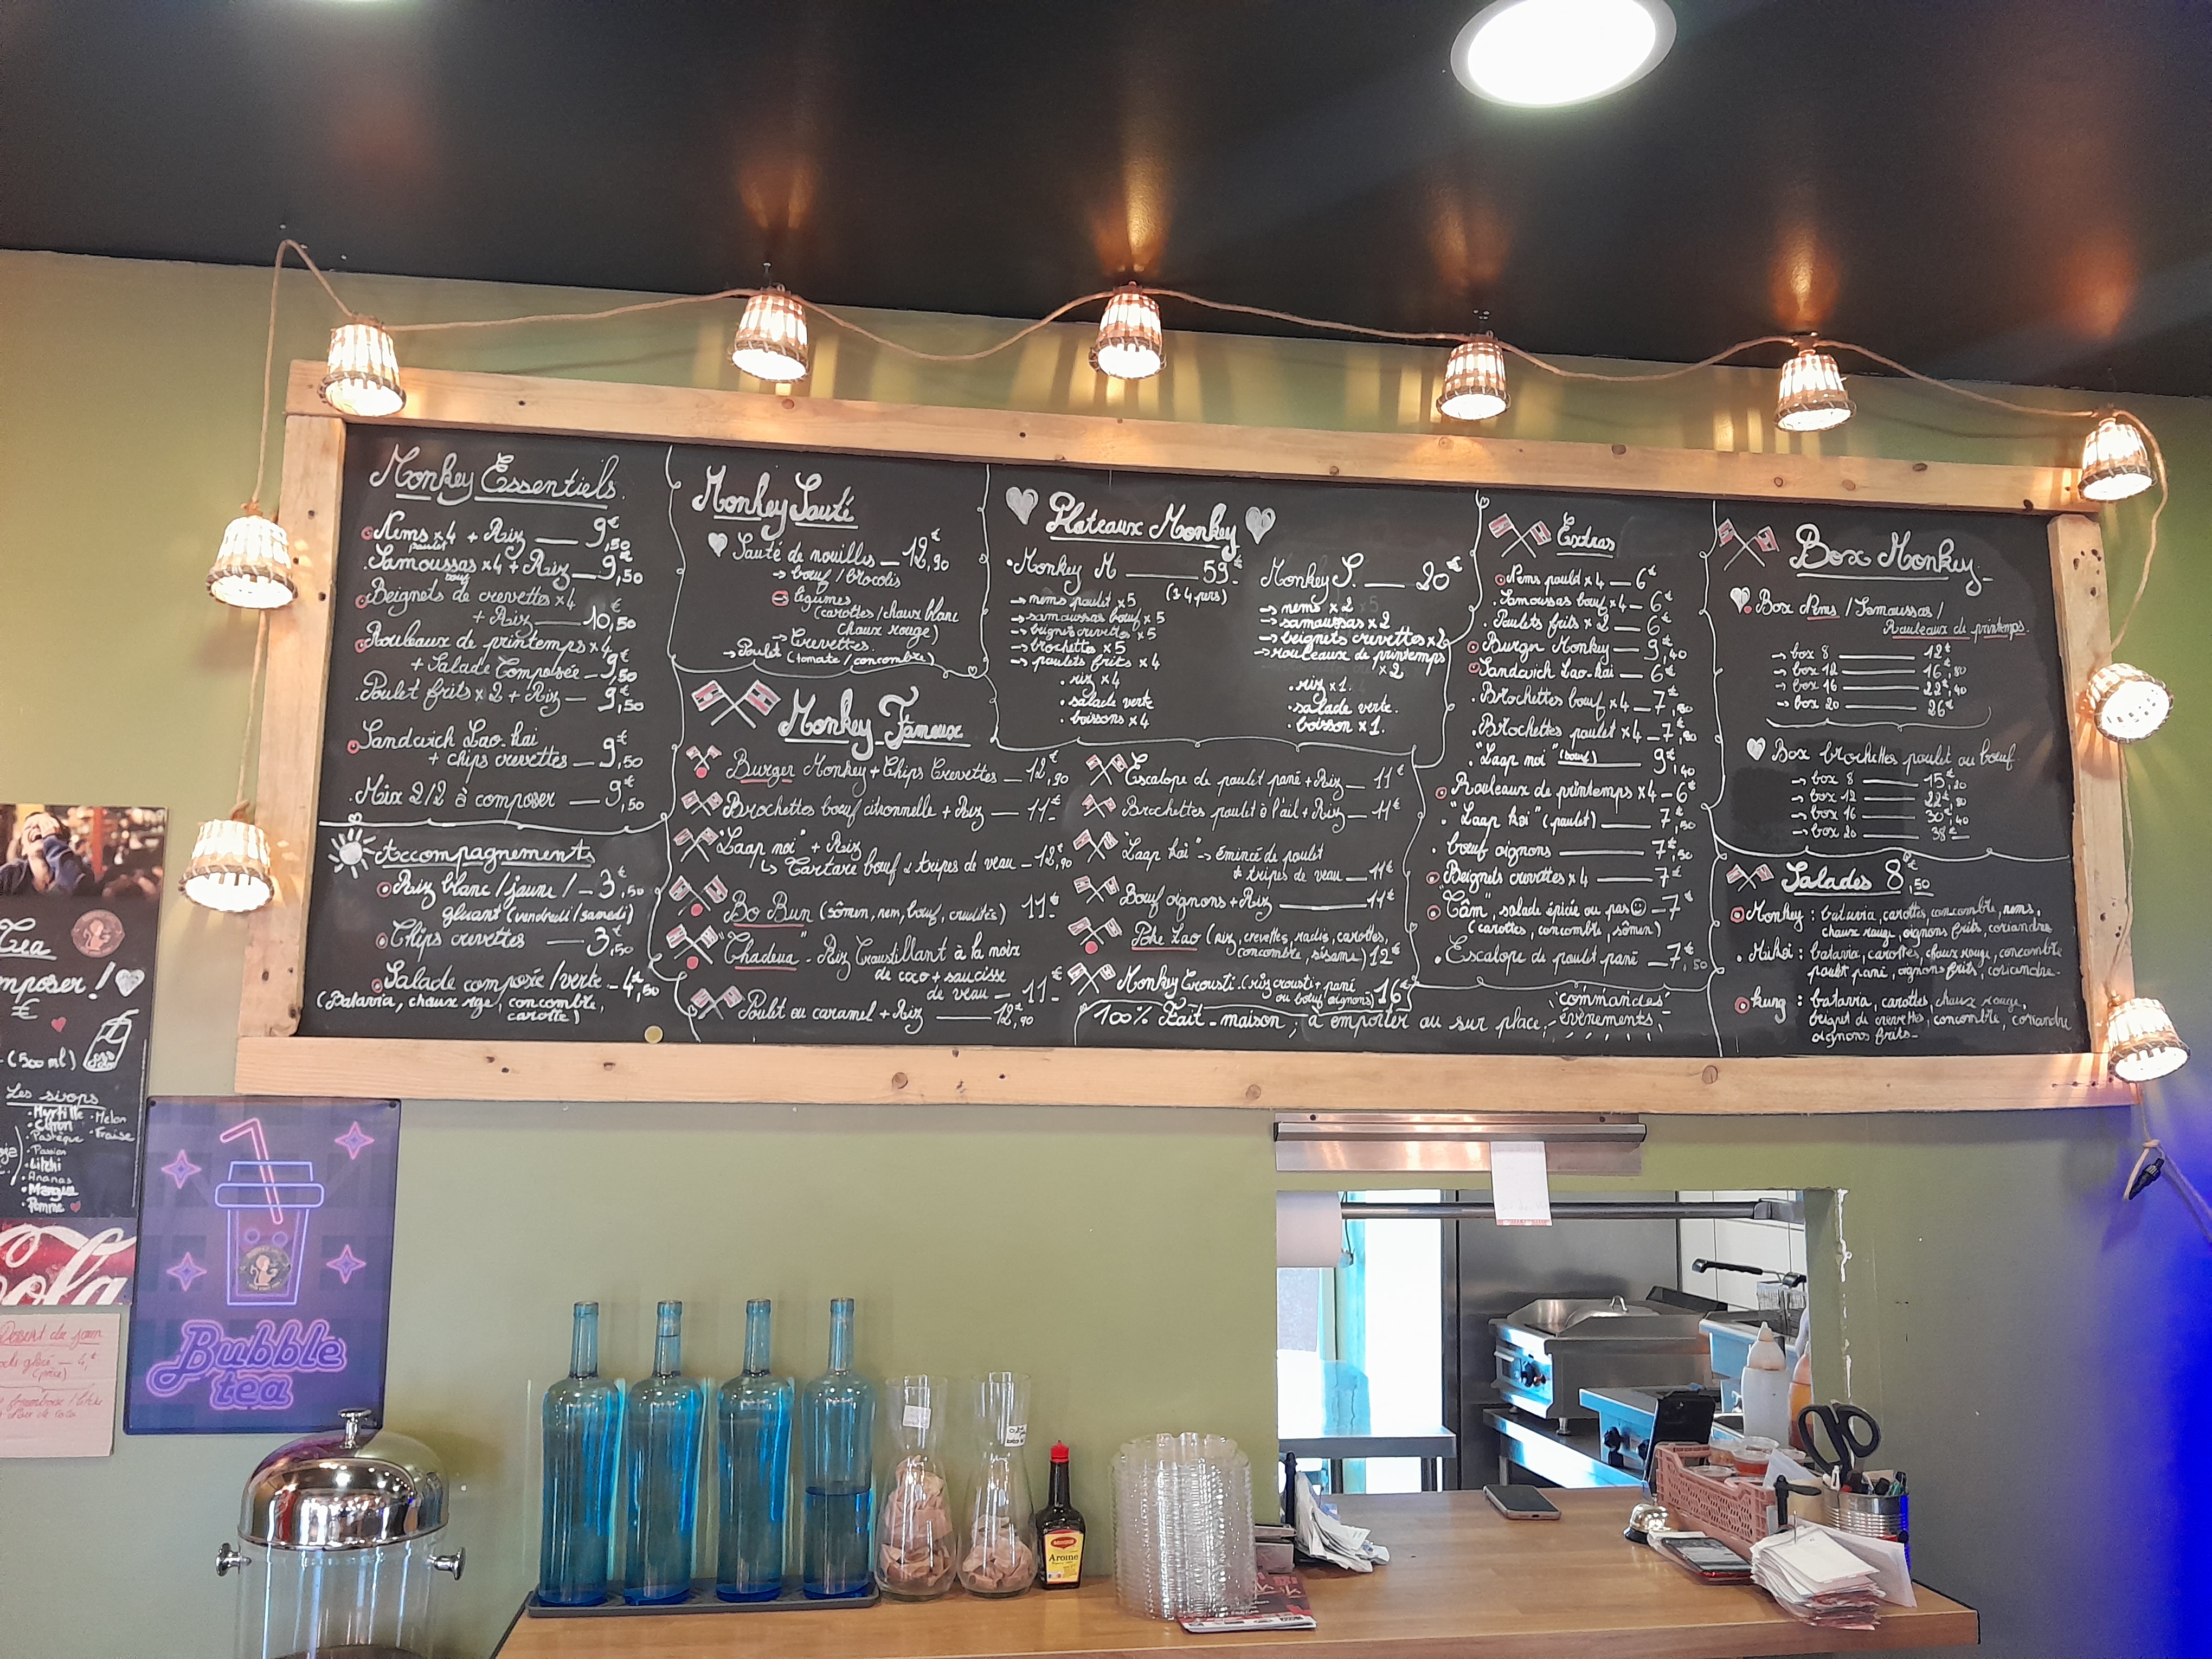 Monkey Essentiels
Nems x4 + Riz — 9€,50
poulet
Samoussas x4 + Riz — 9€,50
bœuf
Beignets de crevettes x4
+ Riz — 10€,50
Rouleaux de printemps x4
+ Salade Composée — 9€,50
Poulet frits x2 + Riz — 9€,50
Sandwich Lao-kai
+ chips crevettes — 9€,50
Mix 2/2 à composer — 9€,50
Accompagnements
Riz blanc / jaune / — 3€,50
gluant (vendredi/samedi)
Chips crevettes — 3€,50
Salade composée / verte — 4€,50
(Batavia, chaux rge, concombre,
carotte)
Monkey Sauté
Sauté de nouilles — 12€,90
→ bœuf / brocolis
légumes
(carottes / chaux blanc
chaux rouge)
→ Crevettes
→ Poulet (tomate / concombre)
Monkey Fameux
Burger Monkey + Chips Crevettes — 12€,90
Brochettes bœuf citronnelle + Riz — 11€
"Laap noi" + Riz
↳ Tartare bœuf & tripes de veau — 12€,90
Bo Bun (sômen, nem, bœuf, crudités) 11€
"Thadeua" - Riz Croustillant à la noix
de coco + saucisse
de veau — 11€
Poulet au caramel + Riz — 12€,90
Escalope de poulet pané + Riz — 11€
Brochettes poulet à l'ail + Riz — 11€
"Laap kai" → émincé de poulet
+ tripes de veau — 11€
Bœuf oignons + Riz — 11€
Poke Lao (riz, crevettes, radis, carottes,
concombre, sésame) 12€
Monkey Crousti (riz crousti + pané
ou bœuf oignons) 16€
100% Fait-maison ; à emporter ou sur place ;
commandes
évènements
Plateaux Monkey
Monkey M — 59€
(3 4 pers)
→ nems poulet x5
→ samoussas bœuf x5
→ beignets crevettes x5
→ brochettes x5
→ poulets frits x4
. riz x4
. salade verte
. boissons x4
Monkey S. — 20€
→ nems x2
→ samoussas x2
→ beignets crevettes x2
→ rouleaux de printemps
x2
. riz x1.
. salade verte.
. boisson x1.
Extras
Nems poulet x4 — 6€
. Samoussas bœuf x4 — 6€
. Poulets frits x2 — 6€
Burger Monkey — 9€,40
Sandwich Lao-kai — 6€
. Brochettes bœuf x4 — 7€,80
. Brochettes poulet x4 — 7€,80
. "Laap noi" (bœuf) — 9€,40
Rouleaux de printemps x4 — 6€
. "Laap kai" (poulet) — 7€,50
. bœuf oignons — 7€,50
Beignets crevettes x4 — 7€
"Tâm", salade épicée ou pas — 7€
(carottes, concombre, sômen)
. Escalope de poulet pané — 7€,50
Box Monkey
Box Nems / Samoussas /
Rouleaux de printemps.
→ box 8 — 12€
→ box 12 — 16€,80
→ box 16 — 22€,40
→ box 20 — 26€
Box brochettes poulet ou bœuf
→ box 8 — 15€,20
→ box 12 — 22€,80
→ box 16 — 30€,40
→ box 20 — 38€
Salades 8€,50
Monkey : batavia, carottes, concombre, nems,
chaux rouge, oignons frits, coriandre
. Mikai : batavia, carottes, chaux rouge, concombre
poulet pané, oignons frits, coriandre.
kung : batavia, carottes, chaux rouge,
beignet de crevettes, concombre, coriandre
oignons frits.
Tea
mposer !
€
(500 ml)
Les sirops
. Myrtille . Melon
. Citron . Fraise
. Pastèque
. Passion
. Litchi
. Ananas
. Mangue
. Pomme
Cola
Bubble
tea
Dessert du jour
glacé — 4€
framboise / litchi
noix de coco
MAGGI
Arome